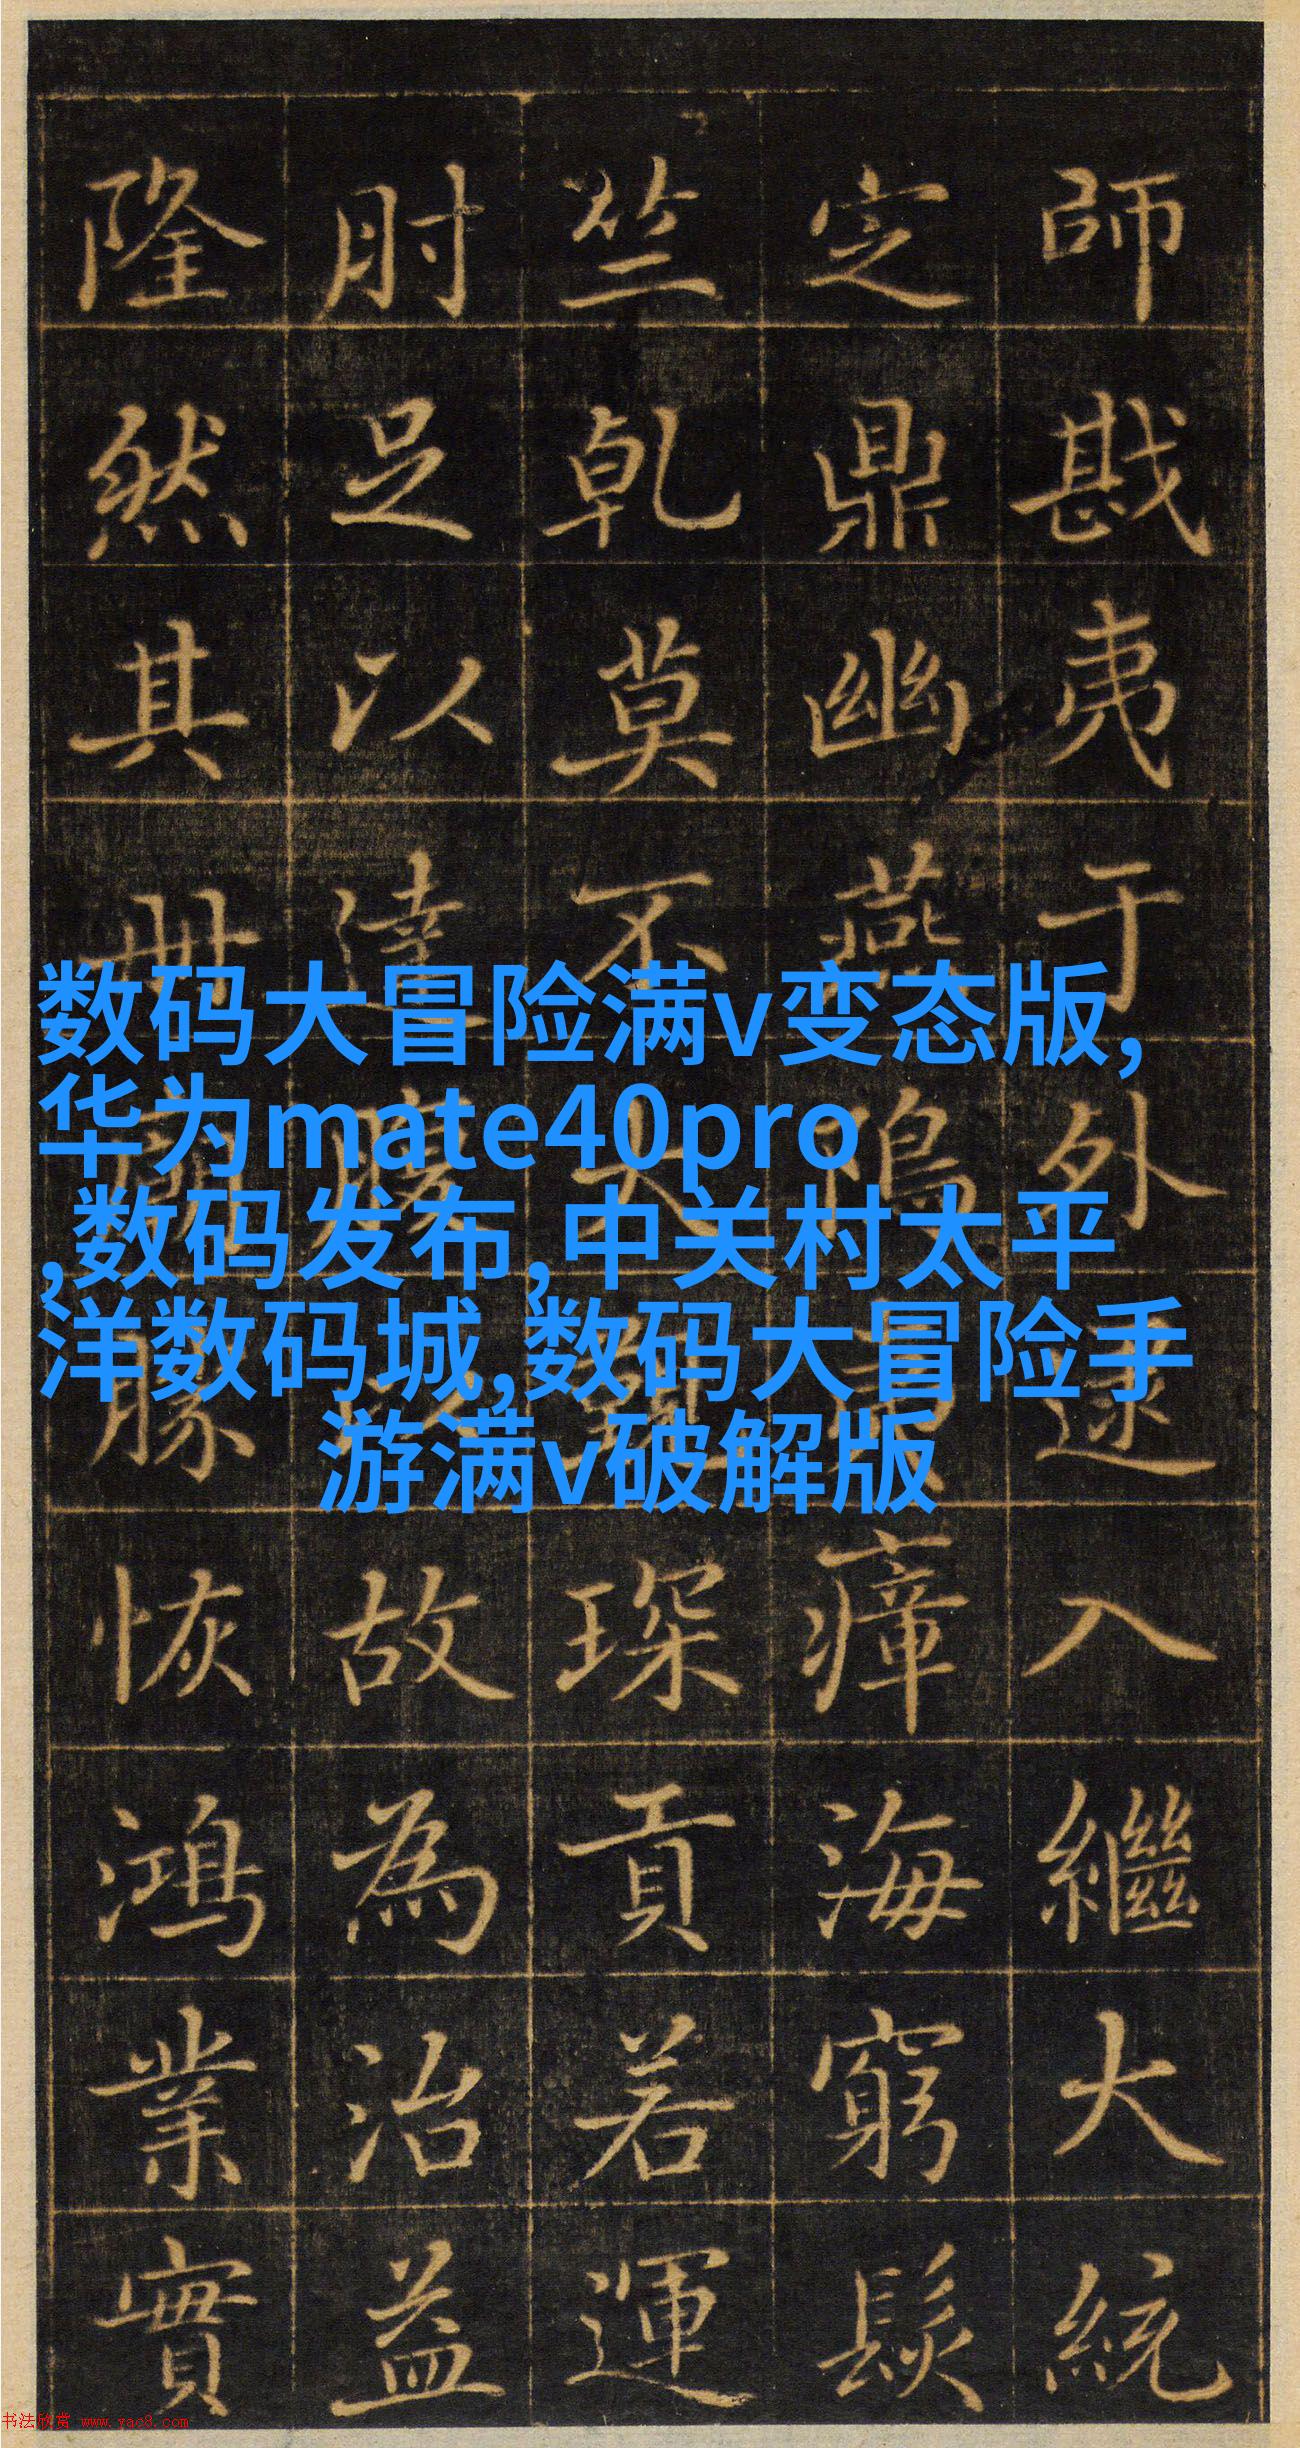 師戡夷于外逮入繼大統
定鼎幽燕瘴海窮髮
竺乾莫不大琛貢若運
肘足以達故為治益
隆然其勝恢鴻業實
数码大冒险满v变态版,
华为mate40pro
,数码发布,中关村太平
洋数码城,数码大冒险手
游满v破解版
书法欣赏 www.yac8.com